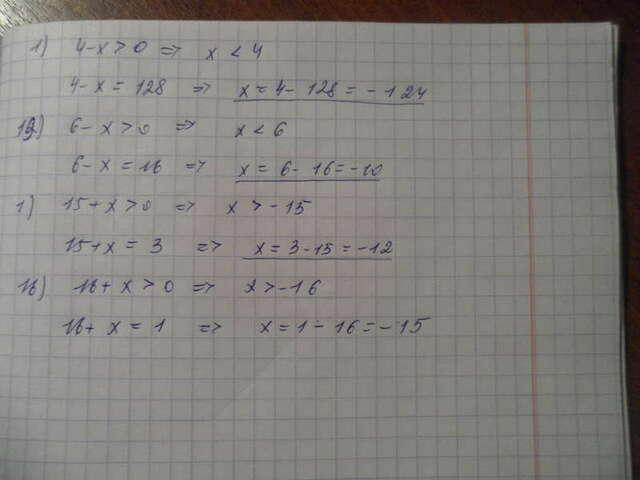 1) 4-x>0 => x < 4
4-x = 128 => x = 4- 128 = -124
6-x>0 => x < 6
6-x = 16 => x = 6- 16 = -10
1) 15+x>0 => x > -15
15+x = 3 => x = 3-15 = -12
16) 16+ x > 0 => x > -16
16+ x = 1 => x = 1 - 16 = -15